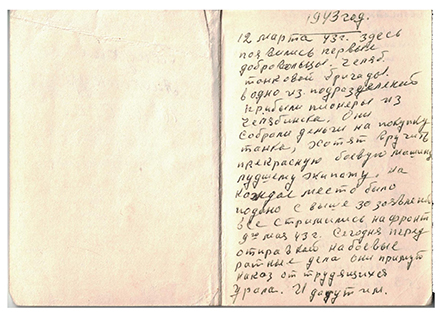 1943 год.
12 марта 43г. Здесь
появились первые
добровольцы. Челяб.
танковой бригады.
в одно из подразделений
прибыли пионеры из
Челябинска. Они
собрали деньги на покупку
танка, хотят вручить
прекрасную боевую машину
лучшему экипажу. На
каждое место было
подано свыше 30 заявлений
все стремились на фронт
9го мая 43г. Сегодня перед
отправкой на боевые
ратные дела они примут
наказ от трудящихся
Урала. И дадут им.